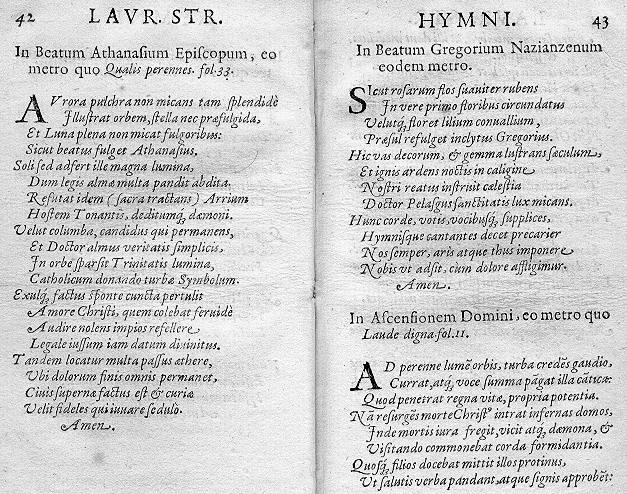 42 LAVR. STR.
In Beatum Athanasium Episcopum, eo
metro quo Qualis perennes. fol.33.
AVrora pulchra non micans tam splendidè
Illustrat orbem, stella nec præfulgida,
Et Luna plena non micat fulgoribus:
Sicut beatus fulget Athanasius.
Soli sed adfert ille magna lumina,
Dum legis almæ multa pandit abdita.
Refutat idem (sacra tractans) Arrium
Hostem Tonantis, deditumq́; dæmoni.
Velut columba, candidus qui permanens,
Et Doctor almus veritatis simplicis,
In orbe sparsit Trinitatis lumina,
Catholicum donando turbæ Symbolum.
Exulq́; factus sponte cuncta pertulit
Amore Christi, quem colebat feruidè
Audire nolens impios refellere
Legale iussum iam datum diuinitus.
Tandem locatur multa passus æthere,
Vbi dolorum finis omnis permanet,
Ciuis supernæ factus est & curiæ
Velit fideles qui iuuare sedulo.
Amen.
HYMNI. 43
In Beatum Gregorium Nazianzenum
eodem metro.
SIcut rosarum flos suauiter rubens
In vere primo floribus circundatus
Velutq́; floret lilium conuallium,
Præsul refulget inclytus Gregorius.
Hic vas decorum, & gemma lustrans sæculum,
Et ignis ardens noctis in caligine
Nostri reatus instruit cælestia
Doctor Pelasgus sanctitatis lux micans.
Hunc corde, votis, vocibusq́; supplices,
Hymnisque cantantes decet precarier
Nos semper, aris atque thus imponere
Nobis vt adsit, cum dolore affligimur.
Amen.
In Ascensionem Domini, eo metro quo
Laude digna. fol.11.
AD perenne lumē orbis, turba credēs gaudio,
Currat, atq́; voce summa pāgat illa cātica:
Quod penetrat regna vitæ, propria potentia.
Nā resurgēs morte Christꝰ intrat infernas domos,
Inde mortis iura fregit, vicit atq́; dæmona, &
Visitando commonebat corda formidantia.
Quosq́; filios docebat mittit illos protinus,
Vt salutis verba pandant, atque signis approbēt: